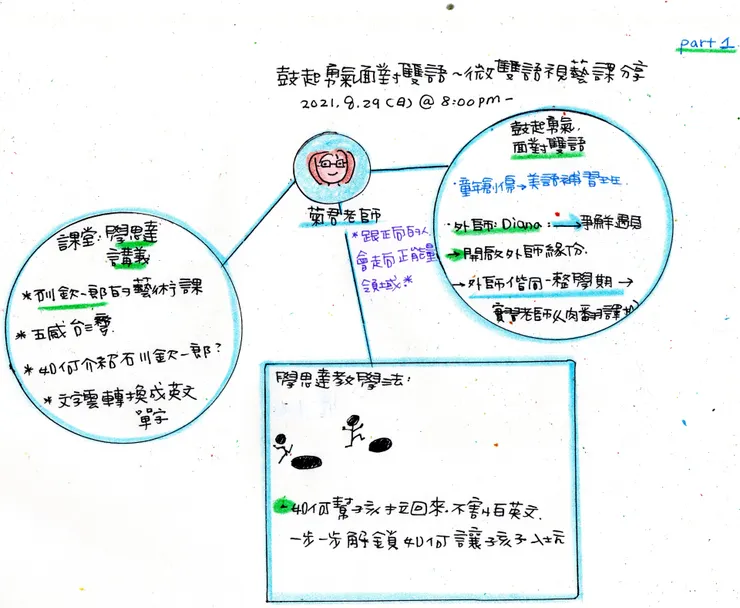 part 1
鼓起勇氣面對雙語～微雙語視藝課分享
2021.8.29(日)@ 8:00pm-
菊君老師
*跟正向的人
會走向正能量
領域*
鼓起勇氣,
面對雙語
·童年創傷→美語補習班.
·外師: Diana:
→開啟外師緣份.
→外師偕同一整學期→
實習老師(肉翻譯
課堂:學思達
講義
*石川欽一郎的藝術課
*五感台灣.
*如何介紹石川欽一郎?
*文字雲轉換成英文
單字
學思達教學法:
如何幫孩拉回來.不害怕英文.
一步一步解鎖如何讓孩子入坑